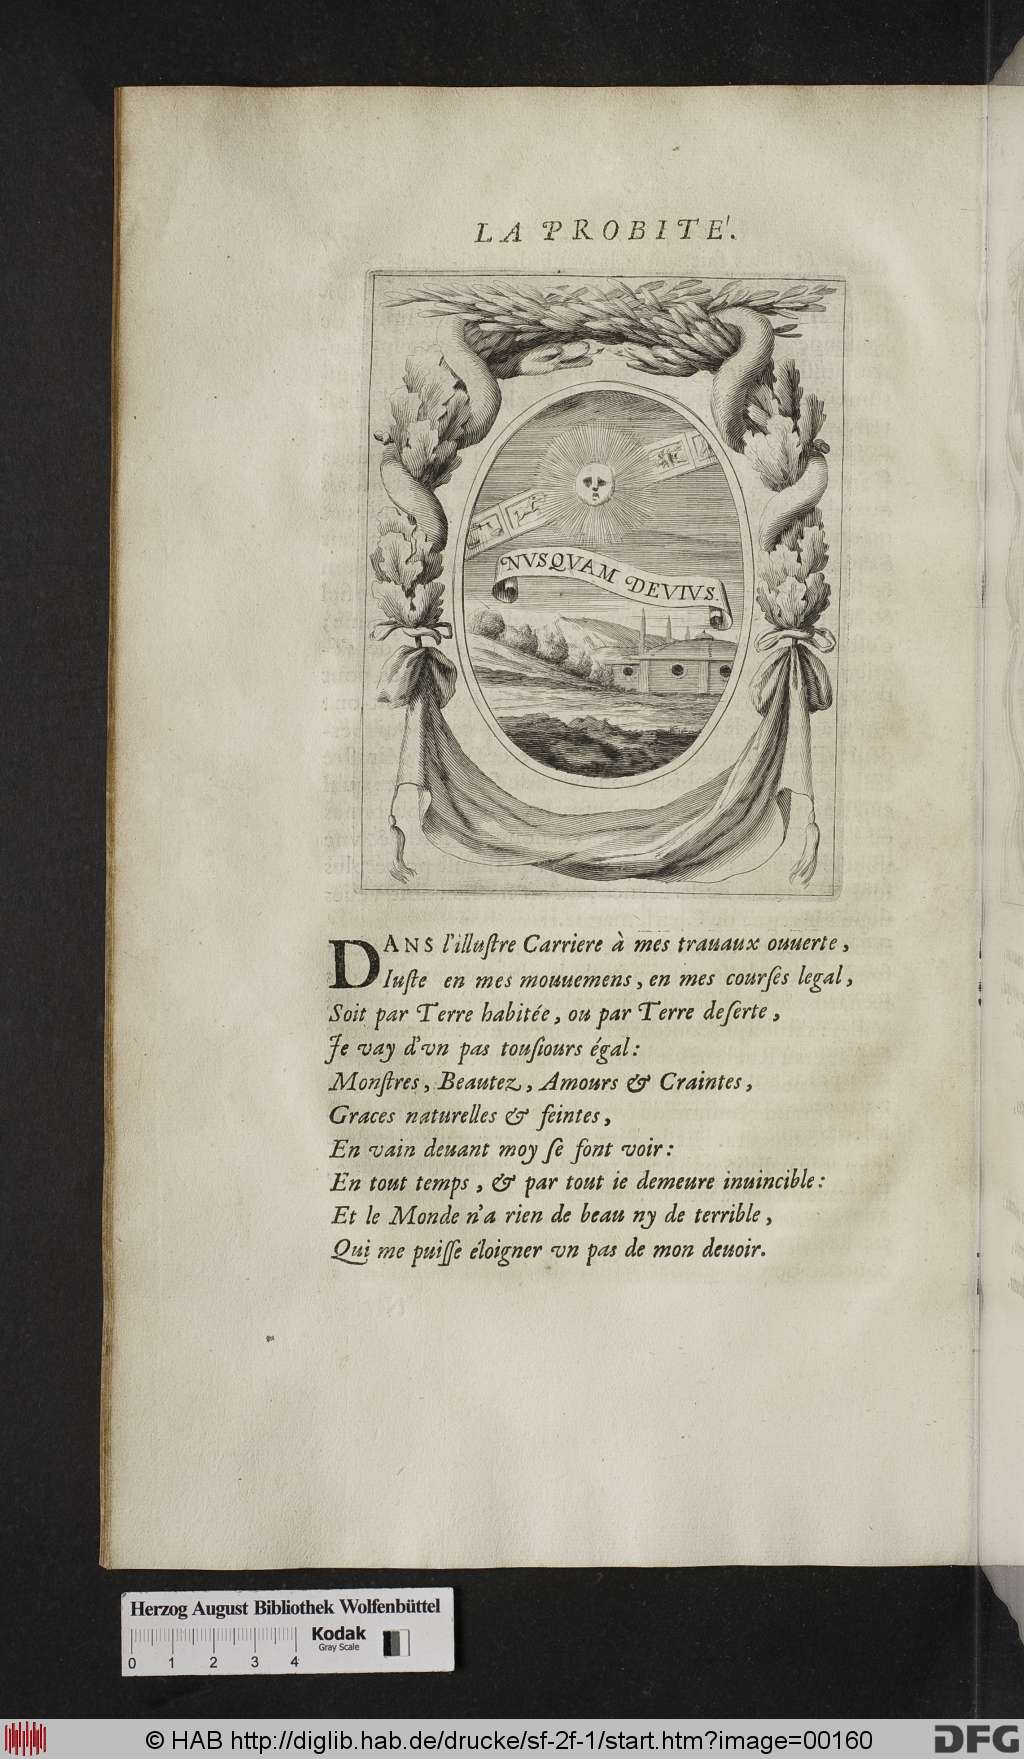 LA PROBITE'.
NVSQVAM DEVIVS.
DANS l'illuſtre Carriere à mes trauaux ouuerte,
Iuſte en mes mouuemens, en mes courſes legal,
Soit par Terre habitée, ou par Terre deſerte,
Je vay d'vn pas touſiours égal:
Monſtres, Beautez, Amours & Craintes,
Graces naturelles & feintes,
En vain deuant moy ſe font voir:
En tout temps, & par tout ie demeure inuincible:
Et le Monde n'a rien de beau ny de terrible,
Qui me puiſſe éloigner vn pas de mon deuoir.
Herzog August Bibliothek Wolfenbüttel
Kodak
Gray Scale
0 1 2 3 4
© HAB http://diglib.hab.de/drucke/sf-2f-1/start.htm?image=00160
DFG